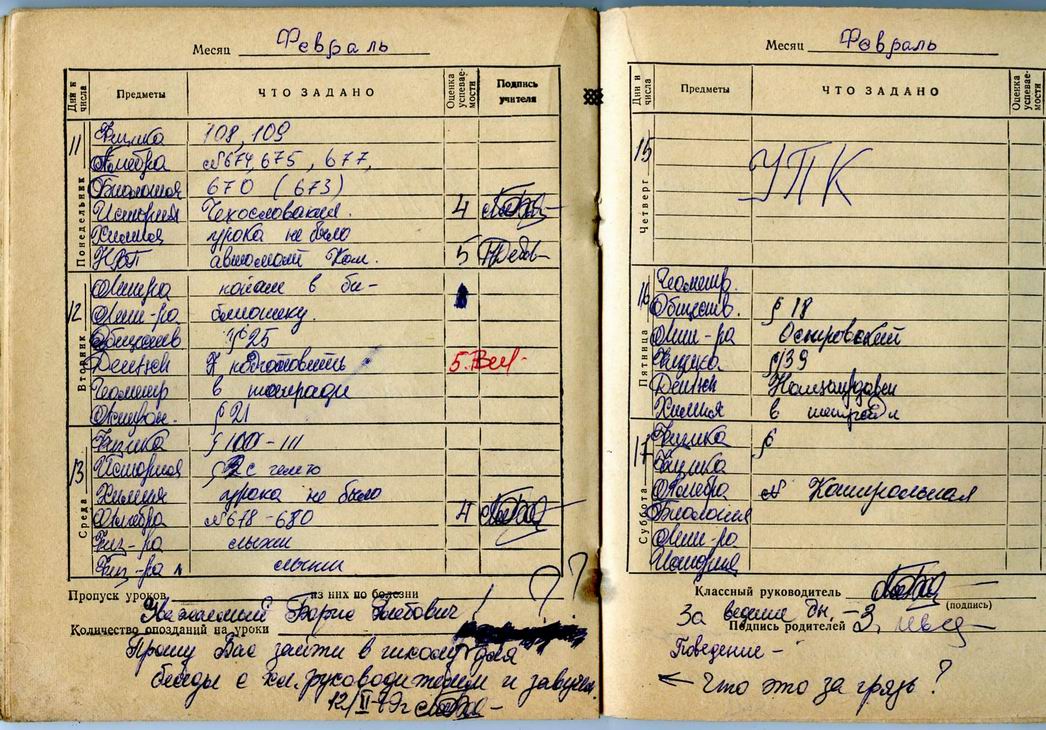 Месяц Февраль
Дни и числа Предметы ЧТО ЗАДАНО Оценка успевае-мости Подпись учителя
Понедельник
11 Физика 108, 109
Алгебра №674, 675, 677,
Биология 670 (673)
История Чехословакия. 4
Химия урока не было
НВП автомат Кал. 5
Вторник
Лит-ра
12 Лит-ра библиотеку.
Обществ §25
подготовить 5.
Геометр в тетради
§21
Среда
Физика § 100-111
13 История
Химия урока не было
Алгебра №678-680 4
Физ-ра лыжи
Физ-ра лыжи
Пропуск уроков из них по болезни
Уважаемый Борис Глебович!
Количество опозданий на уроки
Прошу Вас зайти в школу для
беседы с кл. руководителем и завучем.
12/II-79г
Месяц Февраль
Дни и числа Предметы ЧТО ЗАДАНО Оценка успевае-мости
Четверг
15 УПК
Пятница
Геометр.
16 Обществ. § 18
Лит-ра Островский
Физика §139
Химия в тетради
Суббота
Физика §
17 Физика
Алгебра № Контрольная
Биология
Лит-ра
История
Классный руководитель
(подпись)
За ведение дн. - 3.
Подпись родителей
Поведение -
← Что это за грязь?